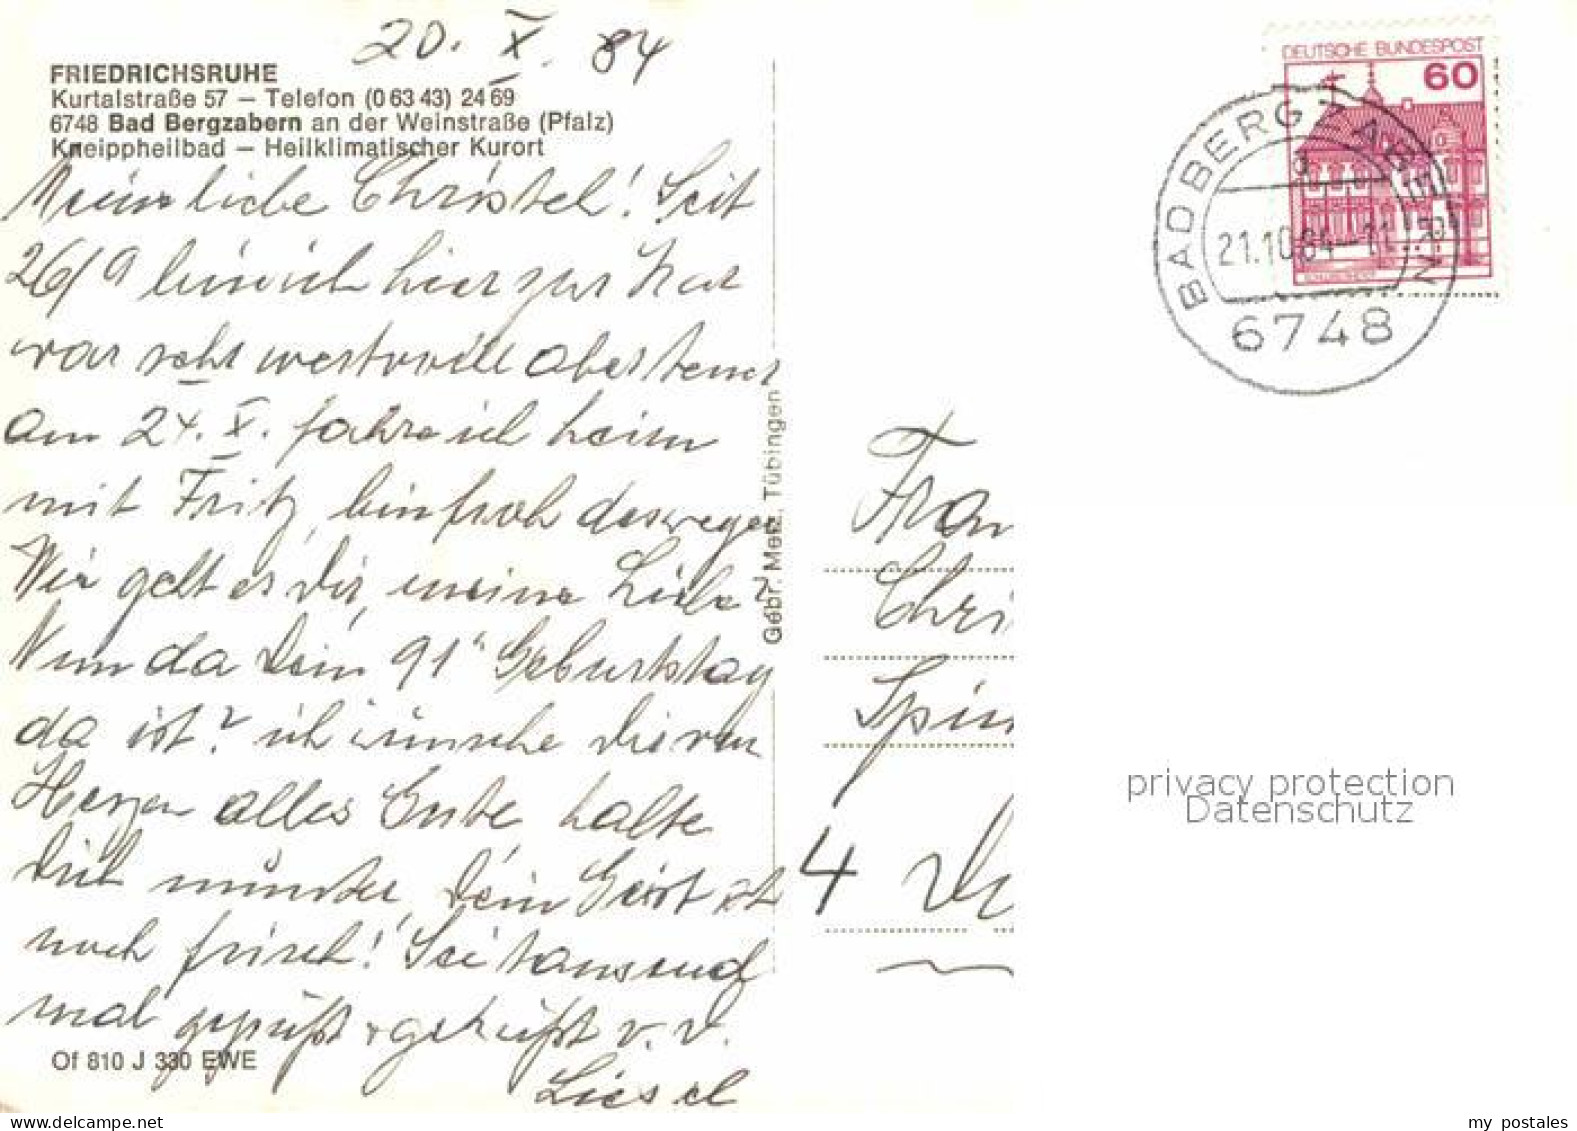 20. X. 84
FRIEDRICHSRUHE
Kurtalstraße 57 – Telefon (0 63 43) 24 69
6748 Bad Bergzabern an der Weinstraße (Pfalz)
Kneippheilbad – Heilklimatischer Kurort
Meine liebe Christel! Seit
26/9 bin ich hier zur Kur
war sehr wertvoll aber teuer
am 24. X. fahre ich heim
mit Fritz, bin froh deswegen
Wie geht es Dir, meine Liebe?
Nun da Dein 91" Geburtstag
da ist? ich wünsche Dir von
Herzen alles Gute halte
Dich munter, Dein Geist ist
noch frisch! Sei tausend
mal gegrüßt + geküßt v. d.
Liesel
Of 810 J 330 EWE
Gebr. Metz, Tübingen
DEUTSCHE BUNDESPOST
60
BAD BERGZABERN
21.10.84-11
6748
Frau
Chri
Spin
4 Dü
privacy protection
Datenschutz
my postales